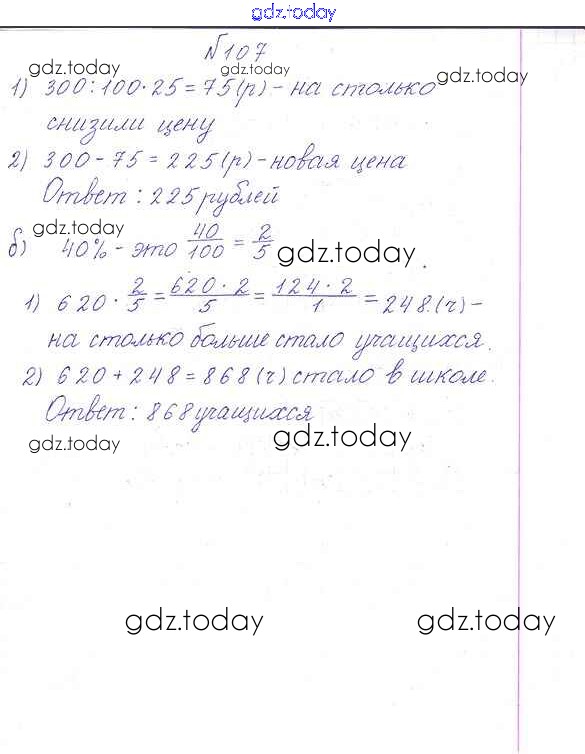 gdz.today
№107
gdz.today gdz.today gdz.today
1) 300:100·25=75(р)-на столько
снизили цену
2) 300-75=225(р)-новая цена
Ответ: 225 рублей
gdz.today
б) 40%-это 40/100 = 2/5 gdz.today
1) 620·2/5=620·2/5=124·2/1=248.(ч)-
на столько больше стало учащихся.
2) 620+248=868(ч) стало в школе.
Ответ: 868 учащихся
gdz.today gdz.today
gdz.today gdz.today